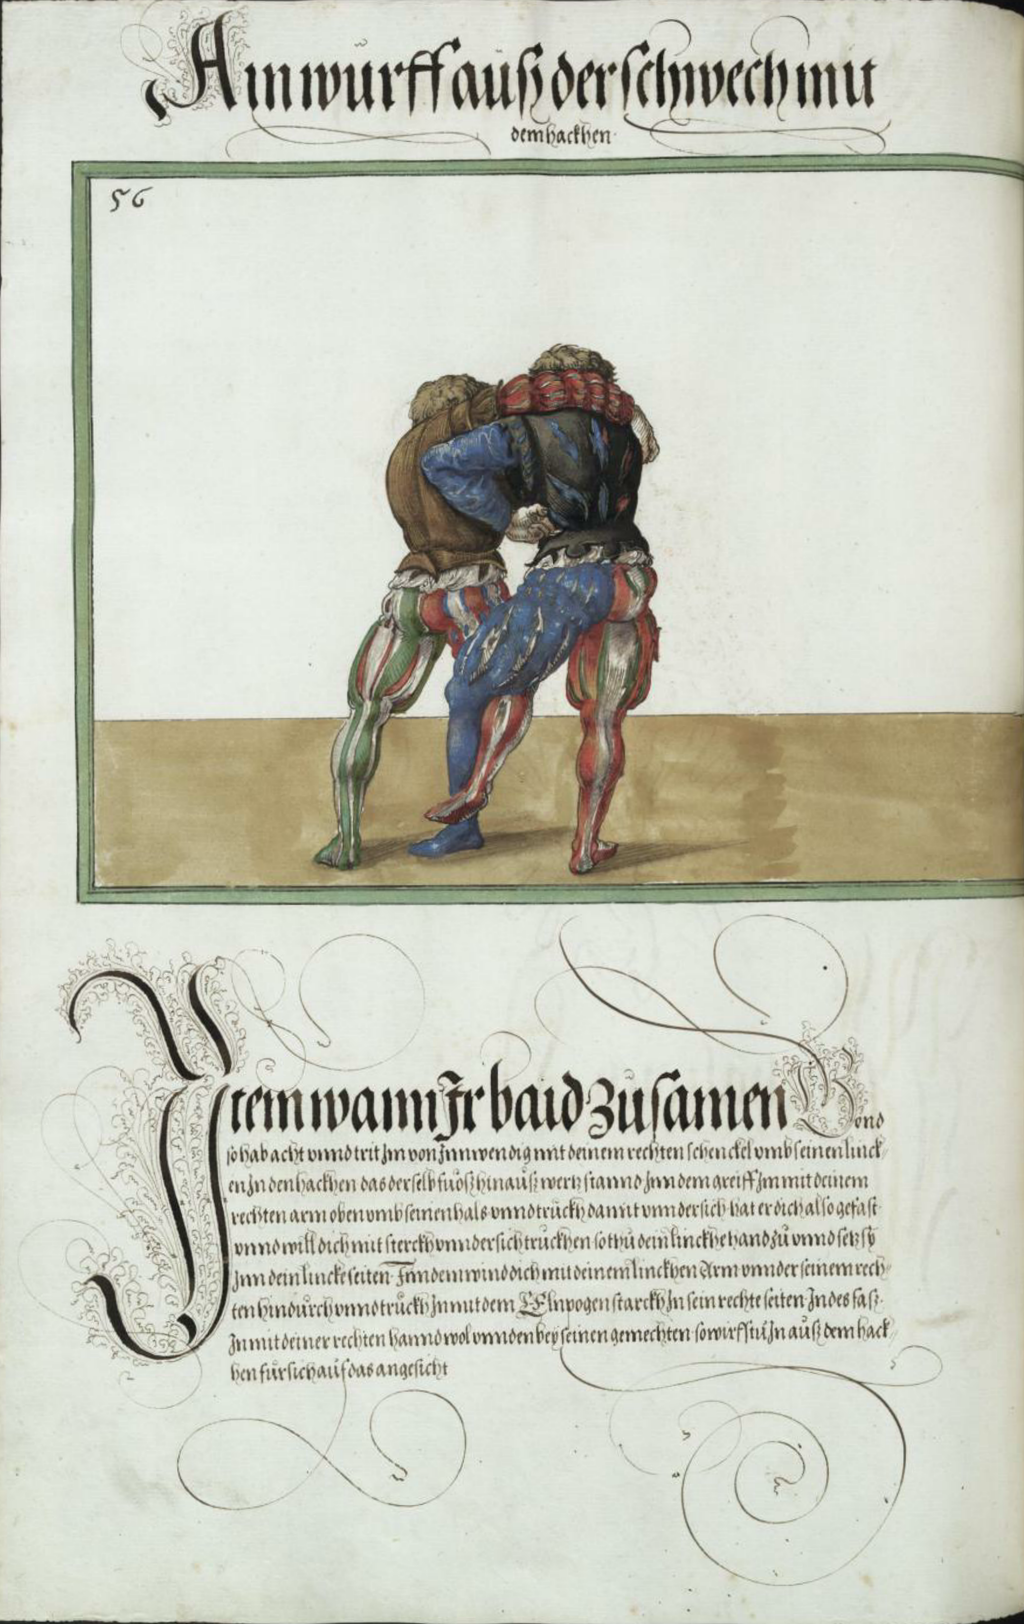 Ain wurff auß der schwech mit
dem hackhen
56
Item wann Ir baid zusamen Gond
so hab acht vnnd trit Im von Innwendig mit deinem rechten schenckel vmb seinen linck-
en In den hackhen das derselb fuoß hinauß wertz stannd Inn dem greiff Im mit deinem
rechten arm oben vmb seinen hals vnnd truckh damit vnndersich hat er dich also gefast
vnnd will dich mit sterckh vnndersich truckhen so thu dein linckhe hand zu vnnd setz sy
Inn dein lincke seiten Inn dem wind dich mit deinem linckhen Arm vnnder seinem rech-
ten hindurch vnnd truckh In mit dem Elnpogen starckh In sein rechte seiten Indes fasz
In mit deiner rechten hannd wol vnnden bey seinen gemechten so wirfstu In auß dem hack-
hen fürsich auf das angesicht